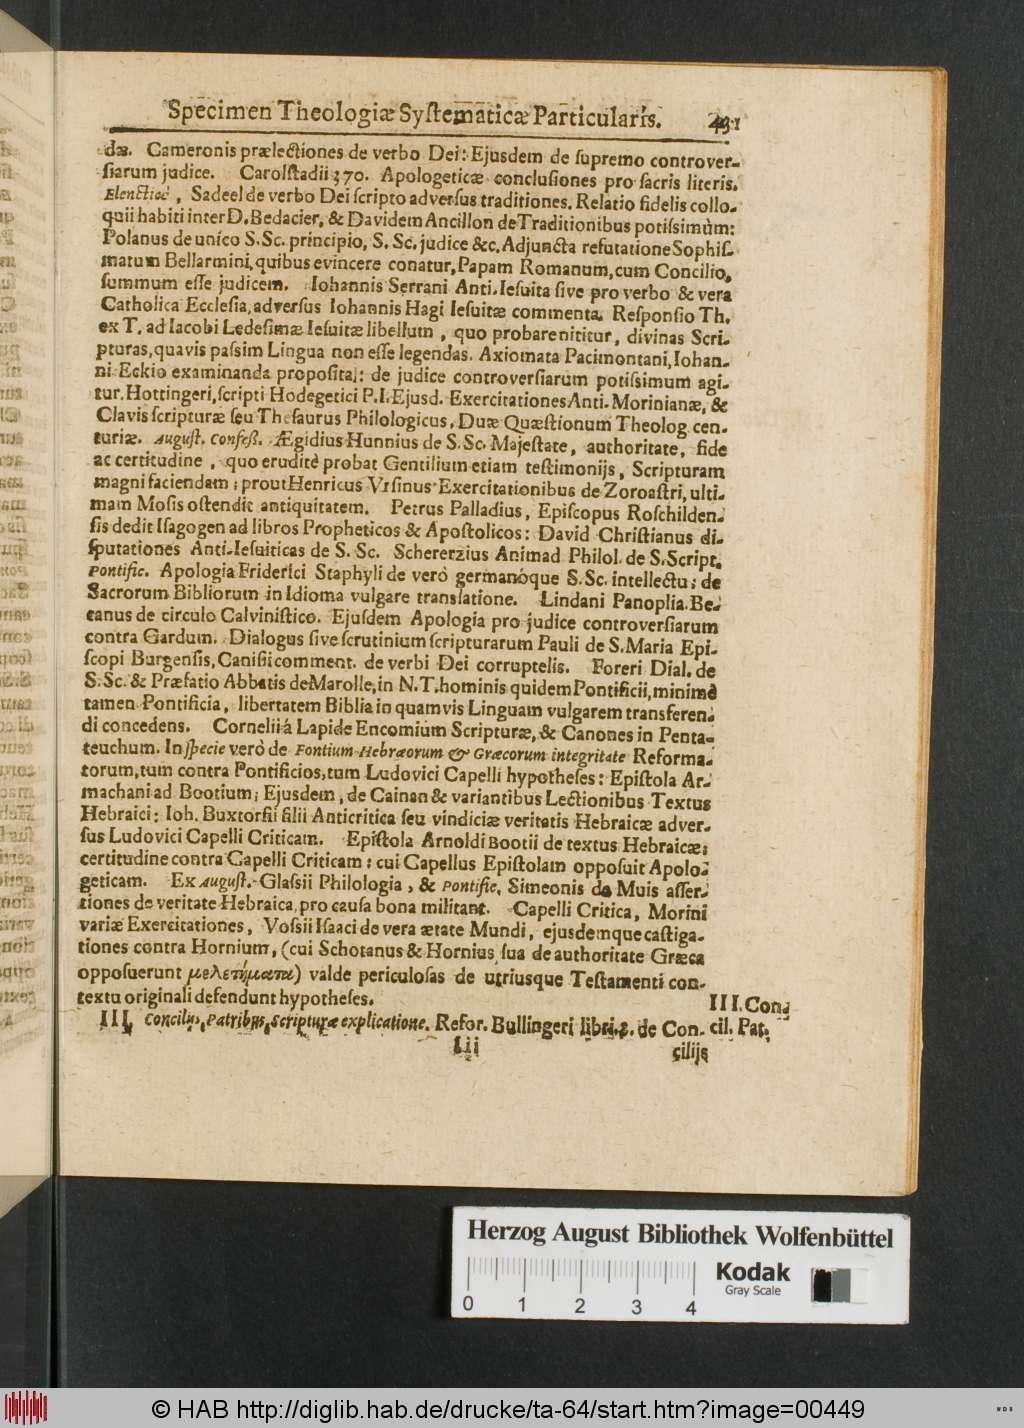 Specimen Theologiæ Syſtematicæ Particularis. 431
da. Cameronis prælectiones de verbo Dei: Ejusdem de ſupremo controver-
ſiarum judice. Carolſtadii 370. Apologeticæ concluſiones pro ſacris literis.
Elenctice, Sadeel de verbo Dei ſcripto adverſus traditiones. Relatio fidelis collo-
quii habiti inter D. Bedacier, & Davidem Ancillon de Traditionibus potiſsimùm:
Polanus de unico S. Sc. principio, S. Sc. judice &c. Adjuncta refutatione Sophiſ-
matum Bellarmini, quibus evincere conatur, Papam Romanum, cum Concilio,
ſummum eſſe judicem. Iohannis Serrani Anti-Ieſuita ſive pro verbo & vera
Catholica Eccleſia, adverſus Iohannis Hagi Ieſuitæ commenta. Reſponſio Th.
ex T. ad Iacobi Ledeſimæ Ieſuitæ libellum, quo probare nititur, divinas Scri-
pturas, quavis paſsim Lingua non eſſe legendas. Axiomata Pacimontani, Iohan-
ni Eckio examinanda propoſita: de judice controverſiarum potiſsimum agi-
tur. Hottingeri, ſcripti Hodegetici P. I. Ejusd. Exercitationes Anti-Morinianæ, &
Clavis ſcripturæ ſeu Theſaurus Philologicus, Duæ Quæſtionum Theolog. cen-
turiæ. Auguſt. Confeß. Ægidius Hunnius de S. Sc. Majeſtate, authoritate, fide
ac certitudine, quo eruditè probat Gentilium etiam teſtimonijs, Scripturam
magni faciendam; prout Henricus Urſinus Exercitationibus de Zoroaſtri, ulti-
mam Moſis oſtendit antiquitatem. Petrus Palladius, Epiſcopus Roſchilden-
ſis dedit Iſagogen ad libros Propheticos & Apoſtolicos: David Chriſtianus di-
ſputationes Anti-Ieſuiticas de S. Sc. Schererzius Animad Philol. de S. Script.
Pontific. Apologia Friderici Staphyli de verò germanóque S. Sc. intellectu; de
Sacrorum Bibliorum in Idioma vulgare translatione. Lindani Panoplia. Be-
canus de circulo Calviniſtico. Ejuſdem Apologia pro judice controverſiarum
contra Gardum. Dialogus ſive ſcrutinium ſcripturarum Pauli de S. Maria Epi-
ſcopi Burgenſis, Caniſii comment. de verbi Dei corruptelis. Foreri Dial. de
S. Sc. & Præfatio Abbatis de Marolle, in N. T. hominis quidem Pontificii, minimè
tamen Pontificia, libertatem Biblia in quamvis Linguam vulgarem transferen-
di concedens. Cornelii á Lapide Encomium Scripturæ, & Canones in Penta-
teuchum. In ſpecie verò de Fontium Hebræorum & Græcorum integritate Reforma-
torum, tum contra Pontificios, tum Ludovici Capelli hypotheſes: Epiſtola Ar-
machani ad Bootium; Ejusdem, de Cainan & variantibus Lectionibus Textus
Hebraici: Ioh. Buxtorfii filii Anticritica ſeu vindiciæ veritatis Hebraicæ adver-
ſus Ludovici Capelli Criticam. Epiſtola Arnoldi Bootii de textus Hebraicæ
certitudine contra Capelli Criticam: cui Capellus Epiſtolam oppoſuit Apolo-
geticam. Ex Auguſt. Glaſsii Philologia, & Pontific. Simeonis de Muis aſſer-
tiones de veritate Hebraica, pro cauſa bona militant. Capelli Critica, Morini
variæ Exercitationes, Voſsii Iſaaci de vera ætate Mundi, ejusdemque caſtiga-
tiones contra Hornium, (cui Schotanus & Hornius ſua de authoritate Græca
oppoſuerunt μελετήματα) valde periculoſas de utriusque Teſtamenti con-
textu originali defendunt hypotheſes.
III. Con-
cil. Pat.
III. Concilijs, Patribus, Scripturæ explicatione. Refor. Bullingeri libri 2. de Con-
Iii cilijs
Herzog August Bibliothek Wolfenbüttel
Kodak
Gray Scale
0 1 2 3 4
© HAB http://diglib.hab.de/drucke/ta-64/start.htm?image=00449